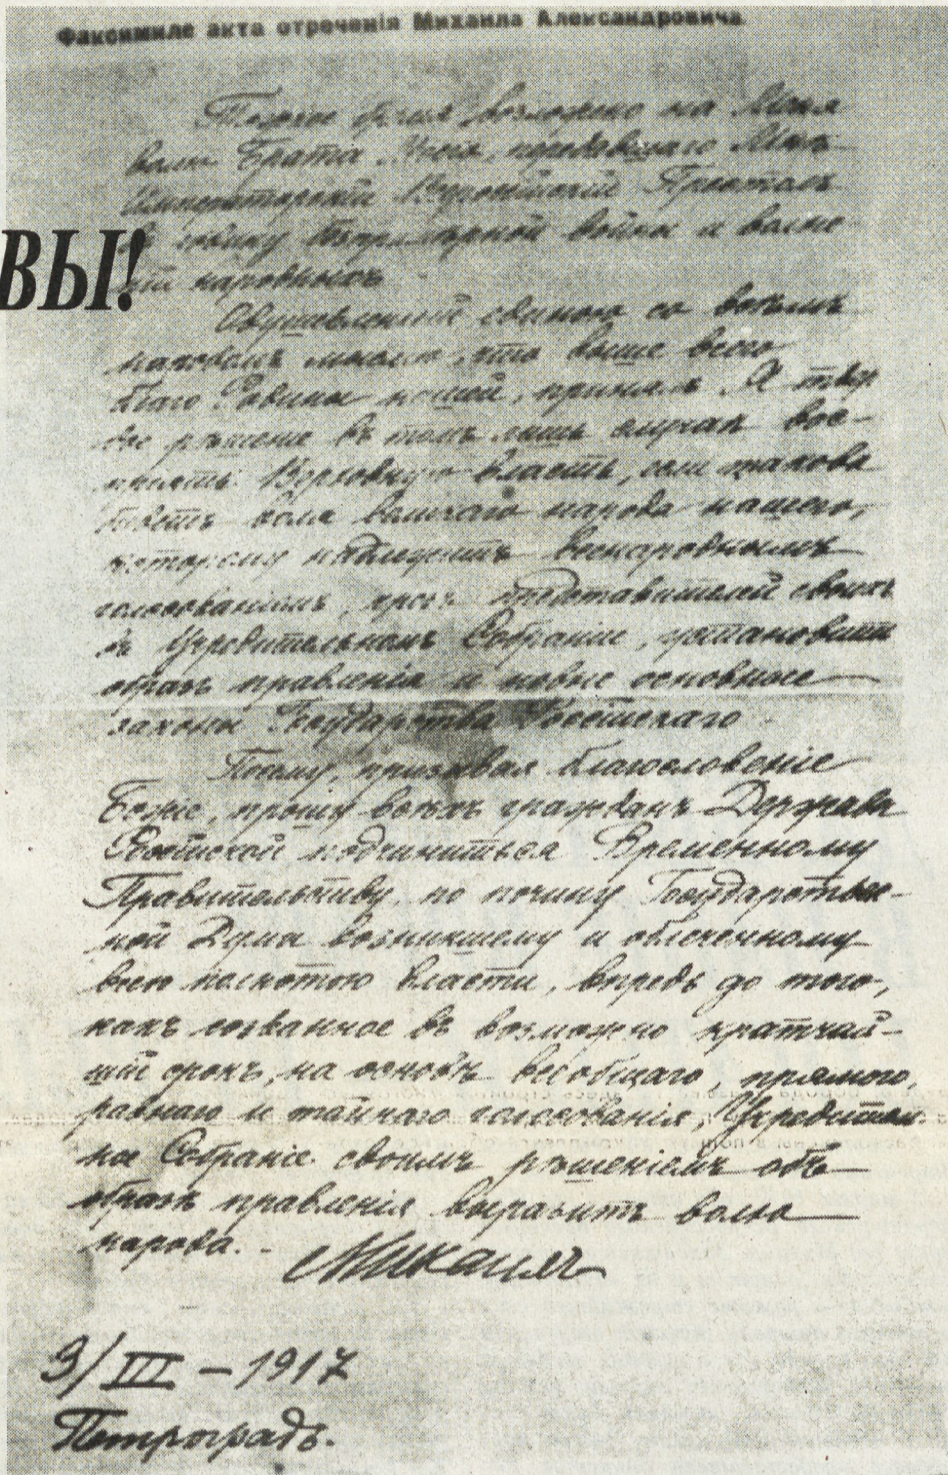 Факсимиле акта отреченія Михаила Александровича.
Тяжкое бремя возложено на Меня
волею Брата Моего, передавшаго Мнѣ
Императорскій Всероссійскій Престолъ
въ годину безпримѣрной войны и волне-
ній народныхъ.
ВЫ!
Одушевленный единою со всѣмъ
народомъ мыслію, что выше всего
благо Родины нашей, принялъ Я твер
дое рѣшеніе въ томъ лишь случаѣ вос-
пріять Верховную власть, если такова
будетъ воля великаго народа нашего,
которому надлежитъ всенароднымъ
голосованіемъ, чрезъ представителей своихъ
въ Учредительномъ Собраніи, установить
образъ правленія и новые основные
законы Государства Россійскаго.
Посему, призывая благословеніе
Божіе, прошу всѣхъ гражданъ Державы
Россійской подчиниться Временному
Правительству, по почину Государствен-
ной Думы возникшему и облеченному
всею полнотою власти, впредь до того,
какъ созванное въ возможно кратчай-
шій срокъ, на основѣ всеобщаго, прямого,
равнаго и тайнаго голосованія, Учредитель-
ное Собраніе своимъ рѣшеніемъ объ
образѣ правленія выразитъ волю
народа. -
Михаилъ
3/III – 1917
Петроградъ.